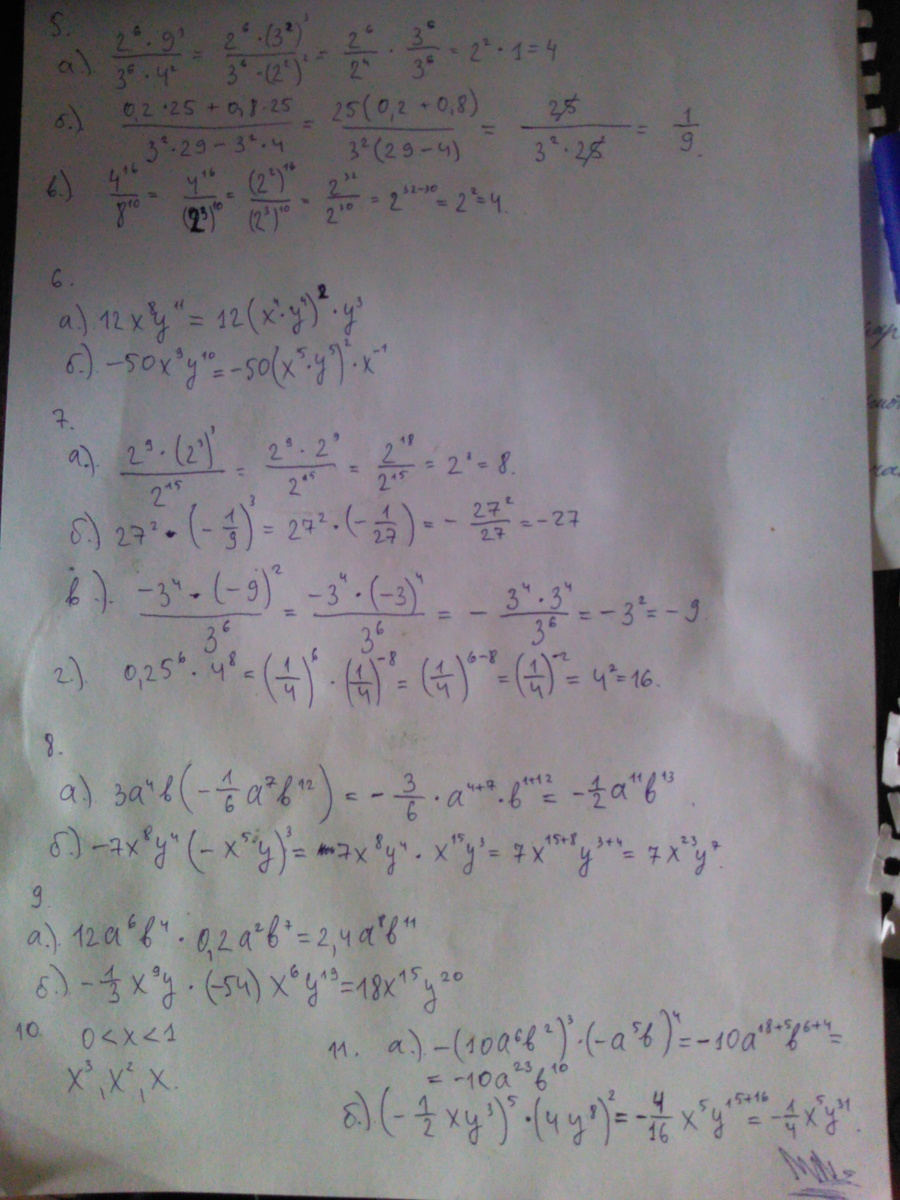 5.
а.) (2⁶ · 9³)/(3⁶ · 4²) = (2⁶ · (3²)³)/(3⁶ · (2²)²) = 2⁶/2⁴ · 3⁶/3⁶ = 2² · 1 = 4
б.) (0,2 · 25 + 0,8 · 25)/(3² · 29 − 3² · 4) = 25(0,2 + 0,8)/(3²(29 − 4)) = 25/(3² · 25) = 1/9.
в.) 4¹⁶/8¹⁰ = 4¹⁶/(2³)¹⁰ = (2²)¹⁶/(2³)¹⁰ = 2³²/2³⁰ = 2³²⁻³⁰ = 2² = 4.
6.
а.) 12x⁸y¹¹ = 12(x⁴·y⁴)² · y³
б.) −50x⁹y¹⁰ = −50(x⁵·y⁵)² · x⁻¹
7.
а.). (2⁹ · (2³)³)/2¹⁵ = (2⁹ · 2⁹)/2¹⁵ = 2¹⁸/2¹⁵ = 2³ = 8.
б.) 27² · (−1/9)³ = 27² · (−1/27) = −27²/27 = −27
в.). (−3⁴ · (−9)²)/3⁶ = (−3⁴ · (−3)⁴)/3⁶ = −(3⁴ · 3⁴)/3⁶ = −3² = −9
г.). 0,25⁶ · 4⁸ = (1/4)⁶ · (1/4)⁻⁸ = (1/4)⁶⁻⁸ = (1/4)⁻² = 4² = 16.
8.
а.) 3a⁴b(−1/6 a⁷b¹²) = −3/6 · a⁴⁺⁷ · b¹⁺¹² = −1/2 a¹¹b¹³.
б.) −7x⁸y⁴(−x⁵y)³ = 7x⁸y⁴ · x¹⁵y³ = 7x¹⁵⁺⁸y³⁺⁴ = 7x²³y⁷.
9.
а.) 12a⁶b⁴ · 0,2a²b⁷ = 2,4a⁸b¹¹
б.) −1/3 x⁹y · (−54)x⁶y¹⁹ = 18x¹⁵y²⁰
10. 0 < x < 1
x³, x², x.
11. а.) −(10a⁶b²)³ · (−a⁵b)⁴ = −10a¹⁸⁺⁵b⁶⁺⁴ =
= −10a²³b¹⁰
б.) (−1/2 xy³)⁵ · (4y⁸)² = −4/16 x⁵y¹⁵⁺¹⁶ = −1/4 x⁵y³¹.